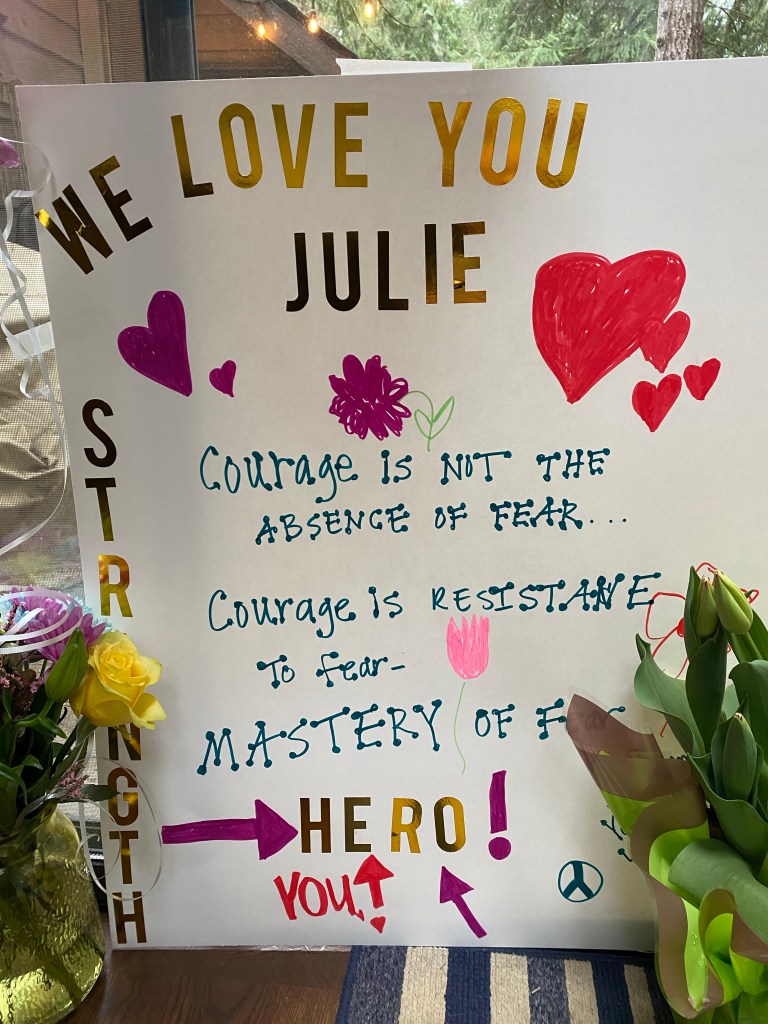 WE LOVE YOU
JULIE
Courage is NOT THE
ABSENCE OF FEAR...
Courage is RESISTANE
To fear-
MASTERY OF
HERO!
YOU!